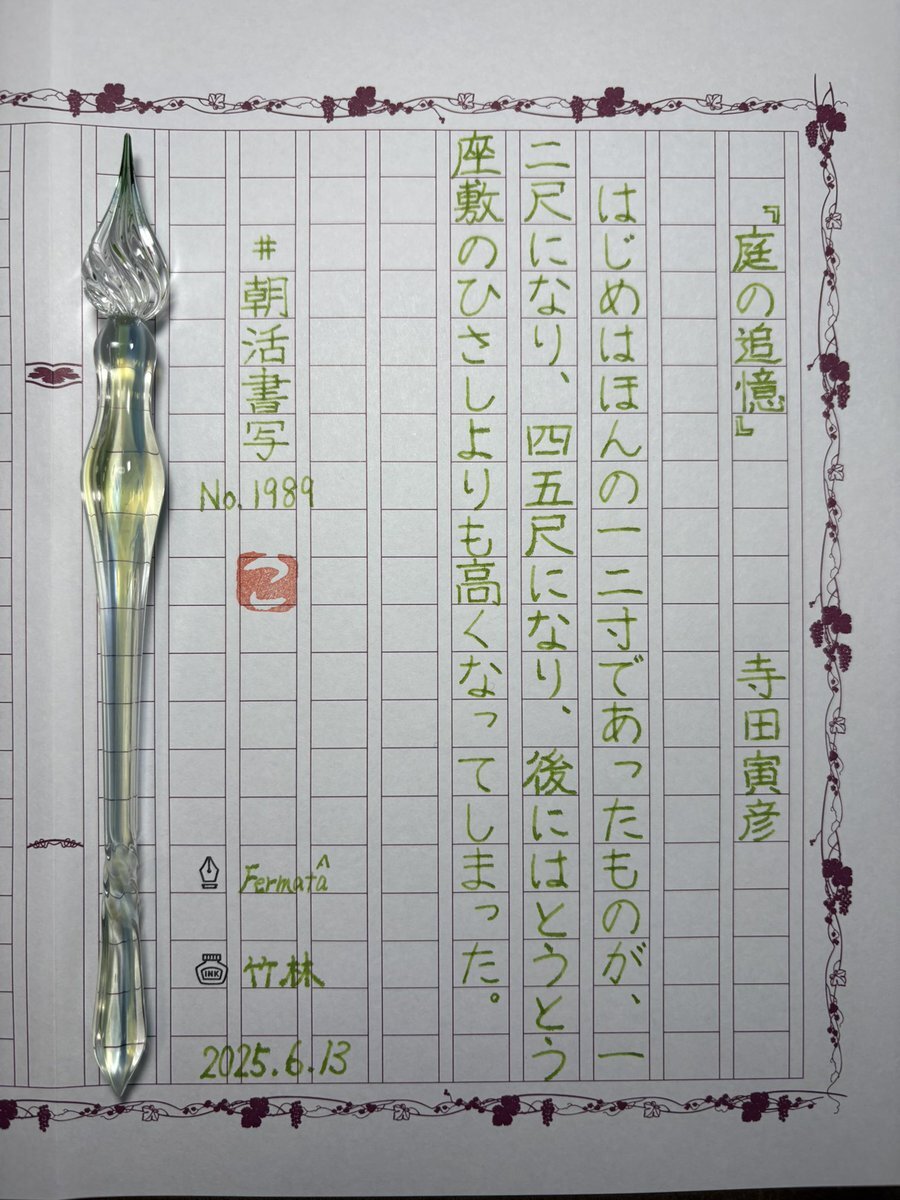 『庭の追憶』 寺田寅彦
はじめはほんの一二寸であったものが、一
二尺になり、四五尺になり、後にはとうとう
座敷のひさしよりも高くなってしまった。
#朝活書写
No.1989
こ
Fermatâ
INK 竹林
2025.6.13